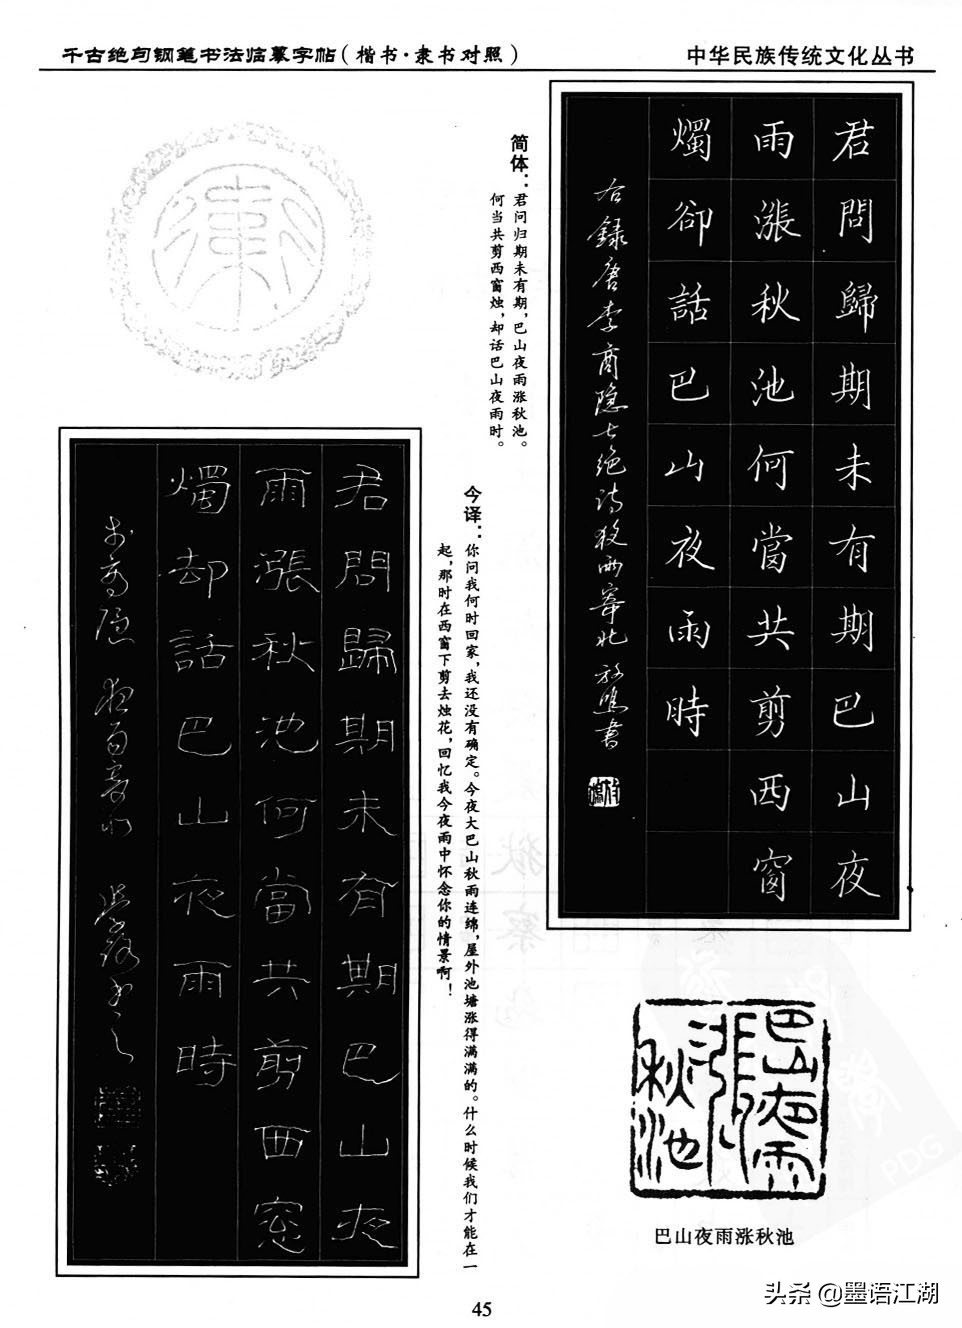 千古绝句钢笔书法临摹字帖(楷书·隶书对照)
中华民族传统文化丛书
君問歸期未有期巴山夜
雨漲秋池何當共剪西窗
燭卻話巴山夜雨時
右録唐李商隐七绝诗
书
简体:君问归期未有期,巴山夜雨涨秋池。
何当共剪西窗烛,却话巴山夜雨时。
今译:你问我何时回家,我还没有确定。今夜大巴山秋雨连绵,屋外池塘涨得满满的。什么时候我们才能在一
起,那时在西窗下剪去烛花,回忆我今夜雨中怀念你的情景啊!
君問歸期未有期巴山夜
雨漲秋池何當共剪西窓
燭却話巴山夜雨時
巴山夜雨
漲
秋池
巴山夜雨涨秋池
45
PDG
头条@墨语江湖